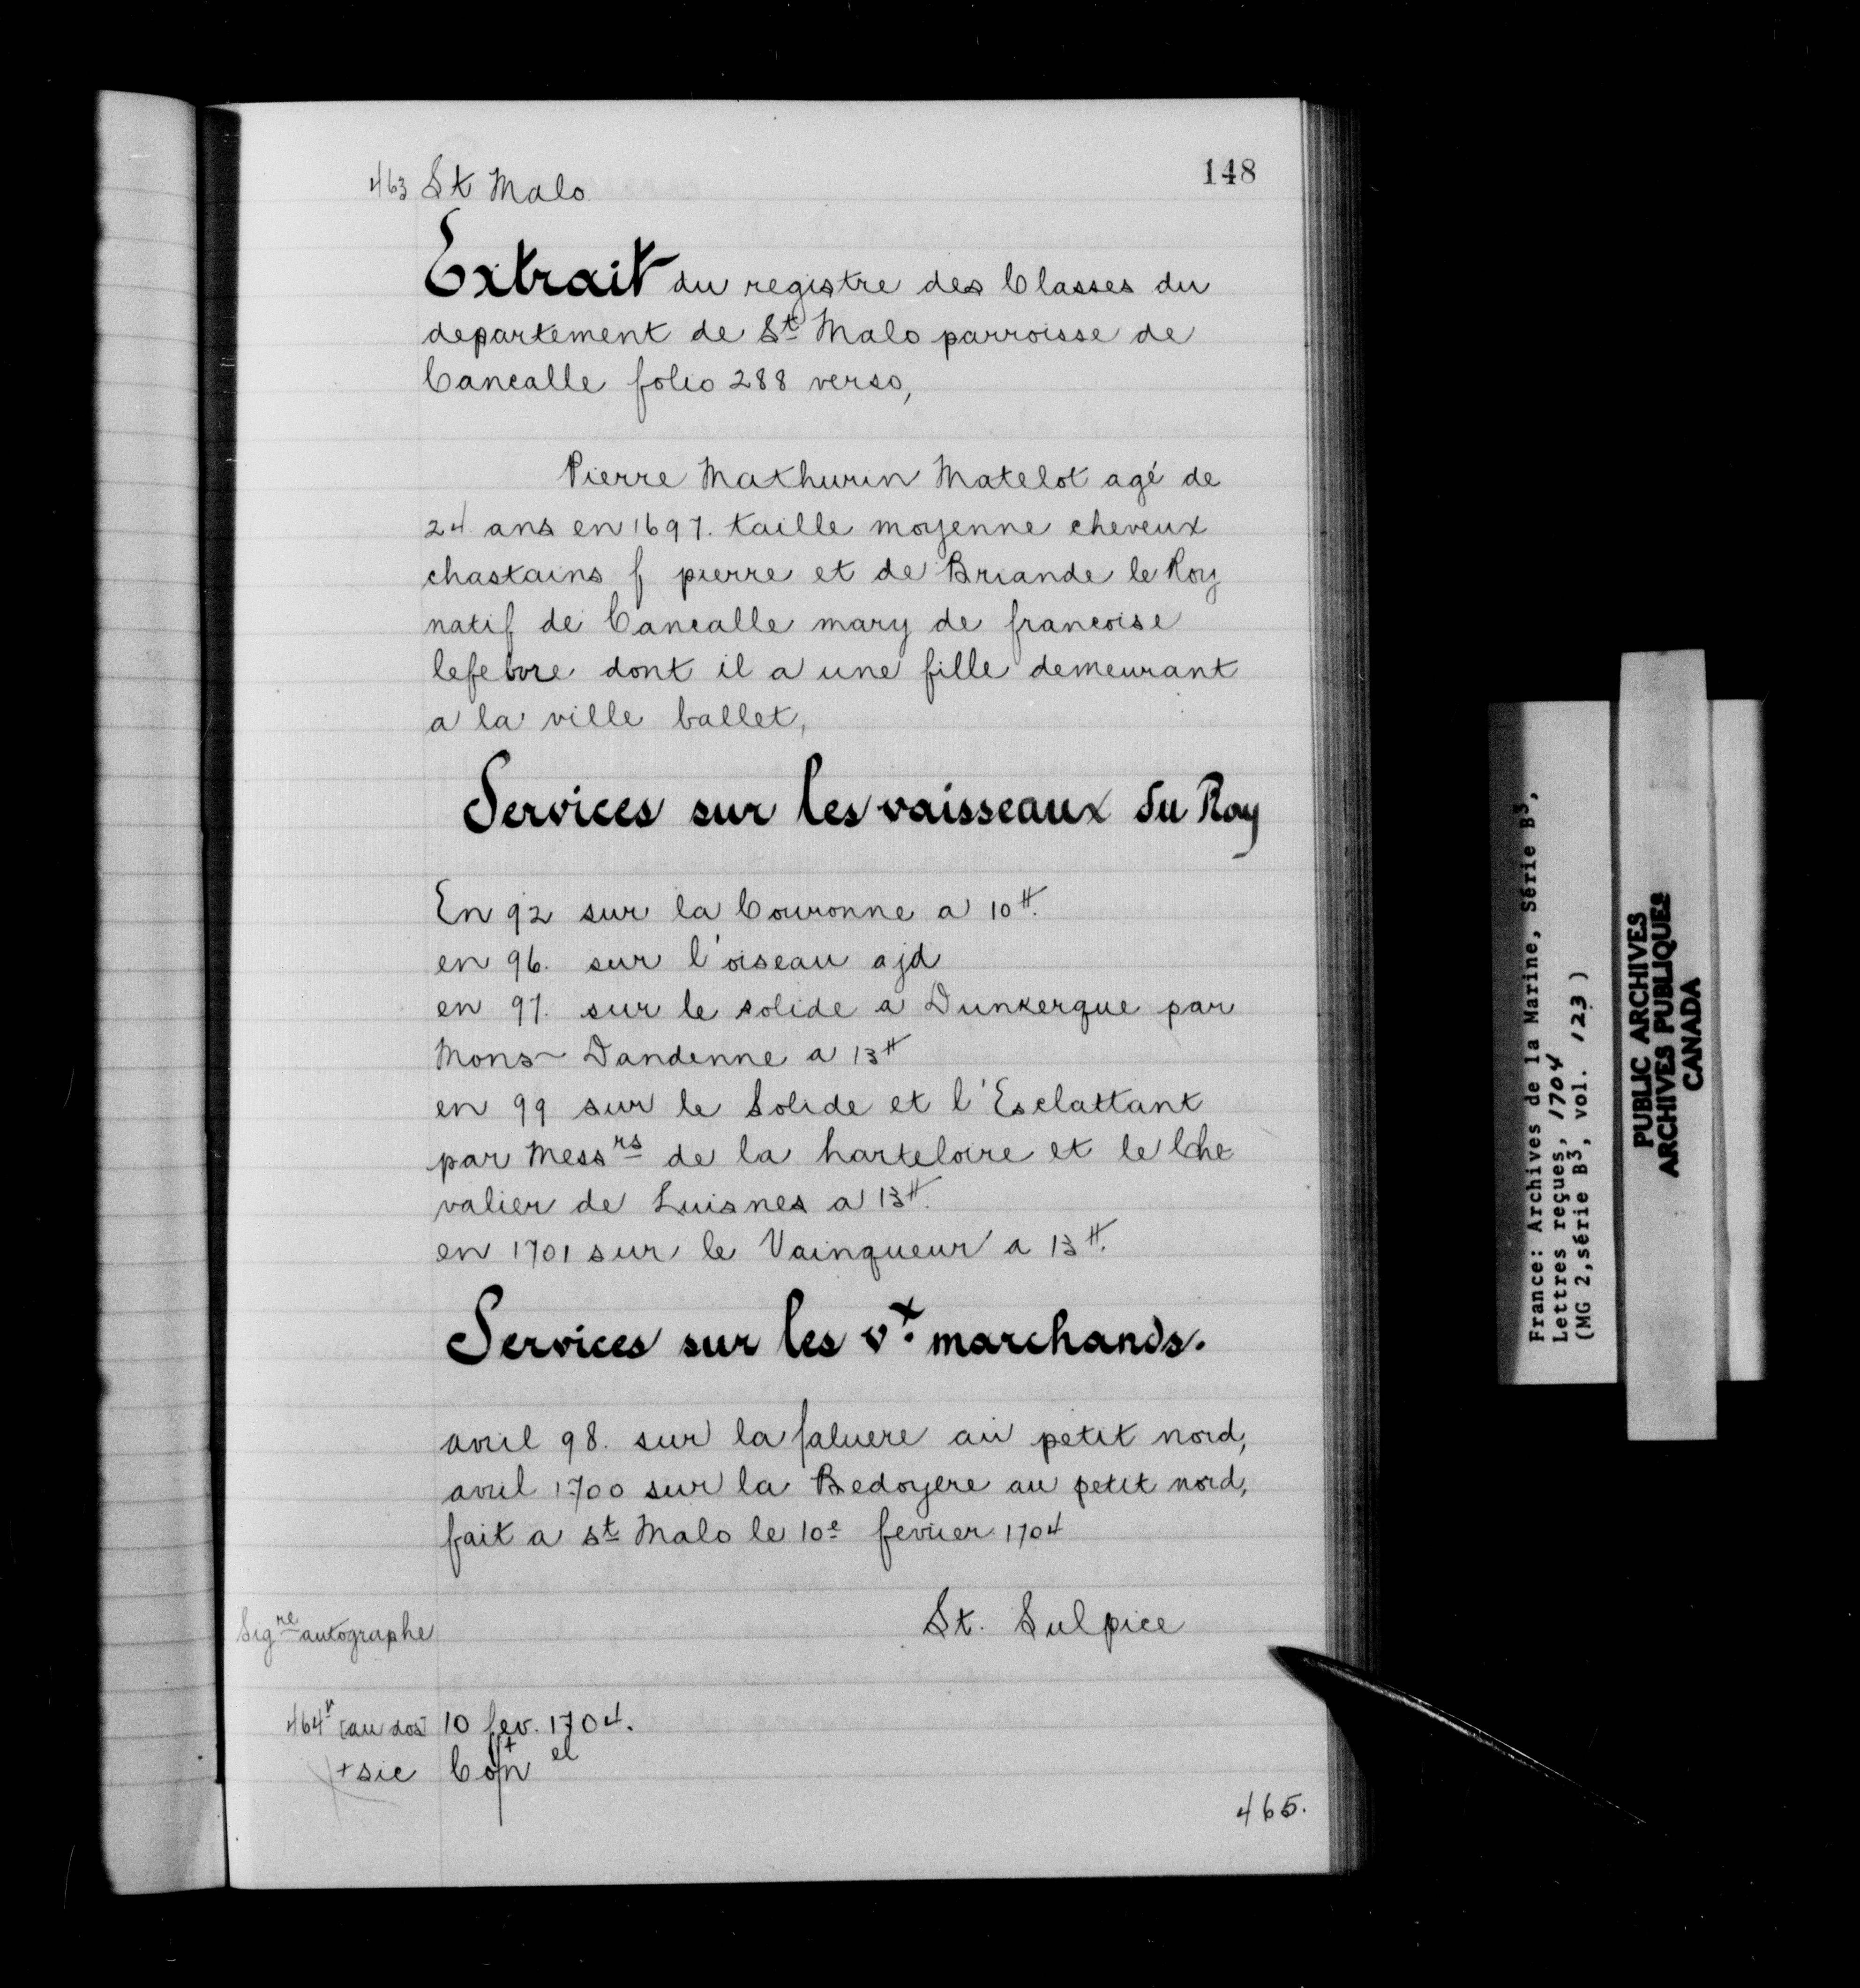 148
463 St Malo
Extrait du registre des Classes du
departement de St Malo parroisse de
Cancalle folio 288 verso,
Pierre Mathurin Matelot agé de
24 ans en 1697. taille moyenne cheveux
chastains f pierre et de Briande le Roy
natif de Cancalle mary de francoise
lefebvre dont il a une fille demeurant
a la ville ballet,
Services sur les vaisseaux du Roy
En 92 sur la Couronne a 10 ₶.
en 96. sur l'oiseau a jd
en 97. sur le solide a Dunkerque par
Mons~ Dandenne a 13 ₶
en 99 sur le Solide et l'Esclattant
par Messrs de la harteloire et le Che
valier de Luisnes a 13 ₶.
en 1701 sur le Vainqueur a 13 ₶.
Services sur les vx. marchands.
avril 98. sur la faluere au petit nord,
avril 1700 sur la Bedoyere au petit nord,
fait a St Malo le 10e fevrier 1704
St. Sulpice
Sigre autographe
464v [au dos] 10 fev. 1704.
+ sic
465.
France: Archives de la Marine, Série B3,
Lettres reçues, 1704
(MG 2, série B3, vol. 123)
PUBLIC ARCHIVES
ARCHIVES PUBLIQUES
CANADA